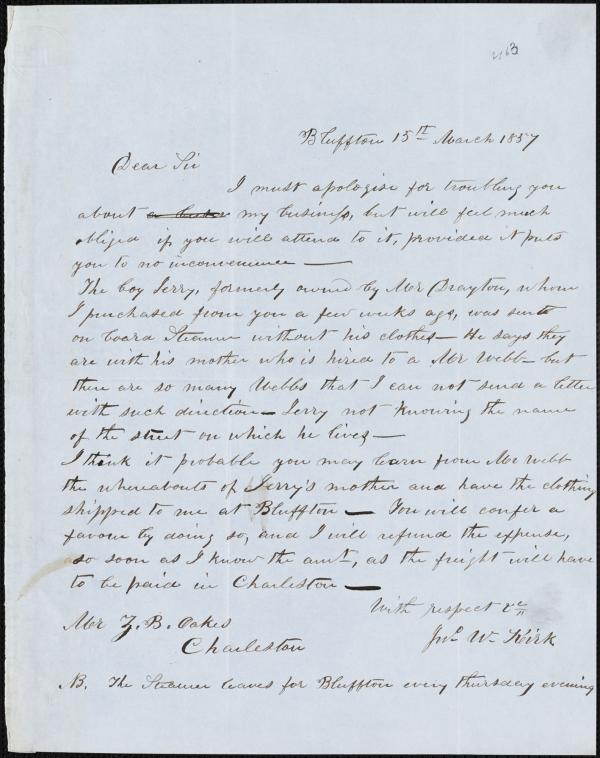 463
Bluffton 15th March 1857
Dear Sir
I must apologise for troubling you
about my business, but will feel much
obliged if you will attend to it, provided it puts
you to no inconvenience —
The boy Jerry, formerly owned by Mr Drayton, whom
I purchased from you a few weeks ago, was sent
on board Steamer without his clothes — He says they
are with his mother who is hired to a Mr Webb — but
there are so many Webbs that I can not send a letter
with such direction — Jerry not knowing the name
of the street on which he lives —
I think it probable you may learn from Mr Webb
the whereabouts of Jerry's mother and have the clothing
shipped to me at Bluffton — You will confer a
favour by doing so, and I will refund the expense,
so soon as I know the amt, as the freight will have
to be paid in Charleston —
With respect &c
Jno W. Kirk
Mr Z. B. Oakes
Charleston
NB. The Steamer leaves for Bluffton every thursday evening